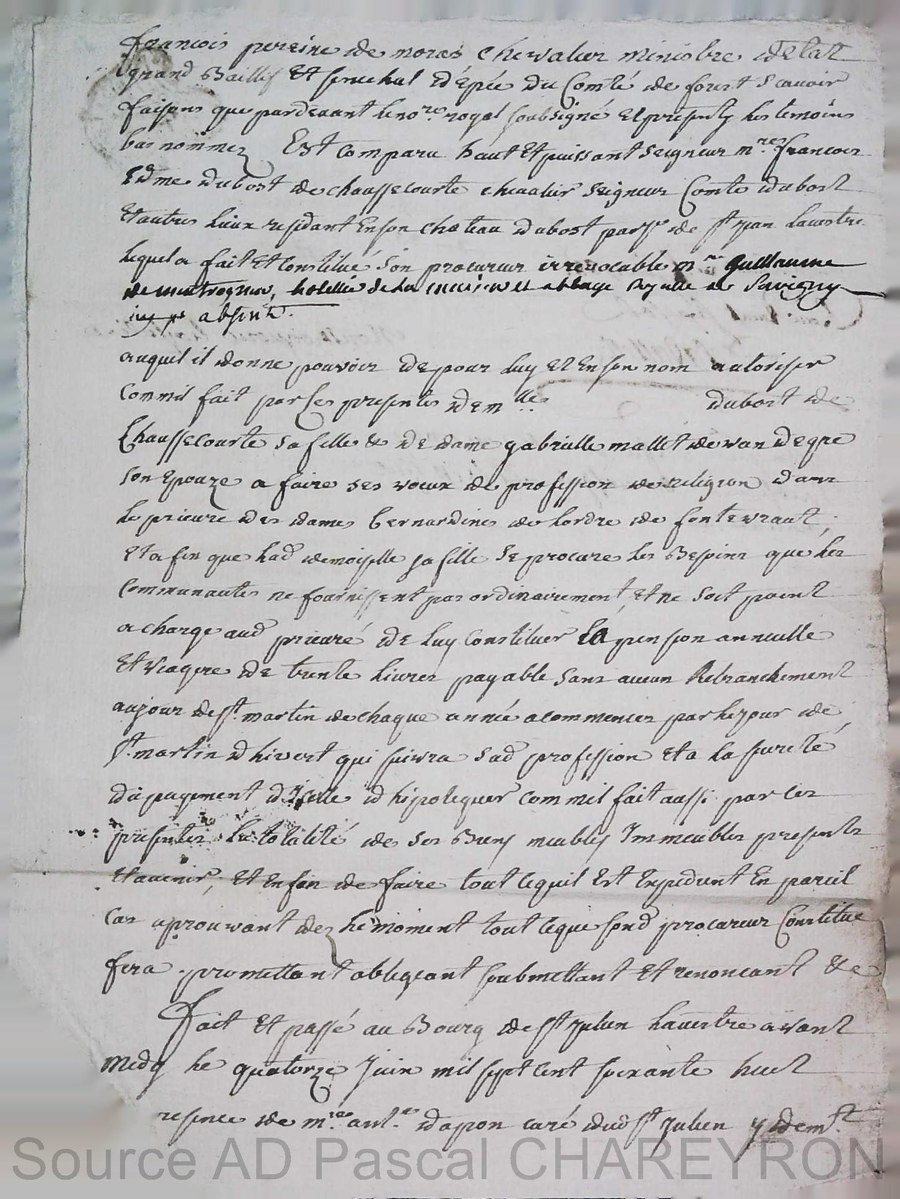 françois pereine de moras chevalier ministre detat
grand Bailly Et senechal dépée du Comté de forest scavoir
faisons que pardevant lenore. royal soubsigné Et presents les temoins
bas nommez Est comparu haut Et puissant seigneur mre. francois
Edme dubost de chaussecourte chevalier seigneur Comte dubost
Et autres lieux residant En son chateau dubost parse de st. jean lavestre
lequel a fait Et Constitué son procureur irrevocable mre Guillaume
de hotellier de abbaye royalle de Savigny
absent.
auquel il donne pouvoir de pour luy Et En son nom autoriser
Comm il fait par ses presentes dem lle dubost de
Chaussecourte sa fille & de dame gabrielle mallet de vandegre
son Epouze a faire ses voeux de profession de religion dans
le prieure des dames bernardines de lordre de fontevraut,
Et afin que lad demoiselle sa fille se procure les Besoins que les
Communautes ne fournissent pas ordinairement, Et ne soit point
a charge aud prieuré de luy Constituer la pension annuelle
Et viagere de trente livres payable sans aucun Retranchement
aujour de st. martin de chaque année a commencer par le jour de
st. martin dhivert qui suivra sad profession Et a la sureté
du payement dicelle dhipotequer comm il fait aussi par ces
presentes la totalité de ses Biens meubles Immeubles presents
Et avenir, Et Enfin de faire tout cequil Est Expedient En pareil
Cas aprouvant dez le moment tout ceque sond procureur Constitué
fera promettant obligeant soubmettant Et renoncant &c
Fait Et passé au Bourg de st. julien lavestre avant
midy le quatorze Juin mil sept cent soixante huit
resence de mre ante. dapon curé dud st. julien y demt.
Source AD Pascal CHAREYRON